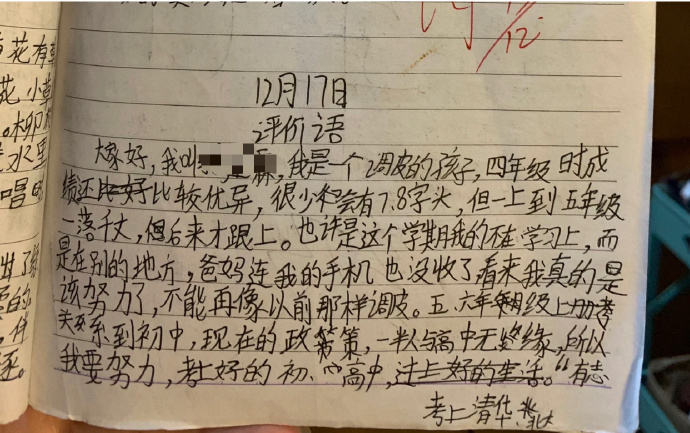 12
12月17日
评价语
花有
花小草
柳
水里
唱
大家好,我叫 霖,我是一个调皮的孩子,四年级时成
绩还比较优异,很少会有7.8字头,但一上到五年级
一落千丈,但后来才跟上。也许是这个学期我的不在学习上,而
是在别的地方,爸妈连我的手机也没收了看来我真的是
该努力了,不能再像以前那样调皮。五.六年级上册考
关系到初中,现在的政策,一半人与高中无缘,所以
我要努力,考上好的初、高中,过上好的生活。“有志
考上清华北大